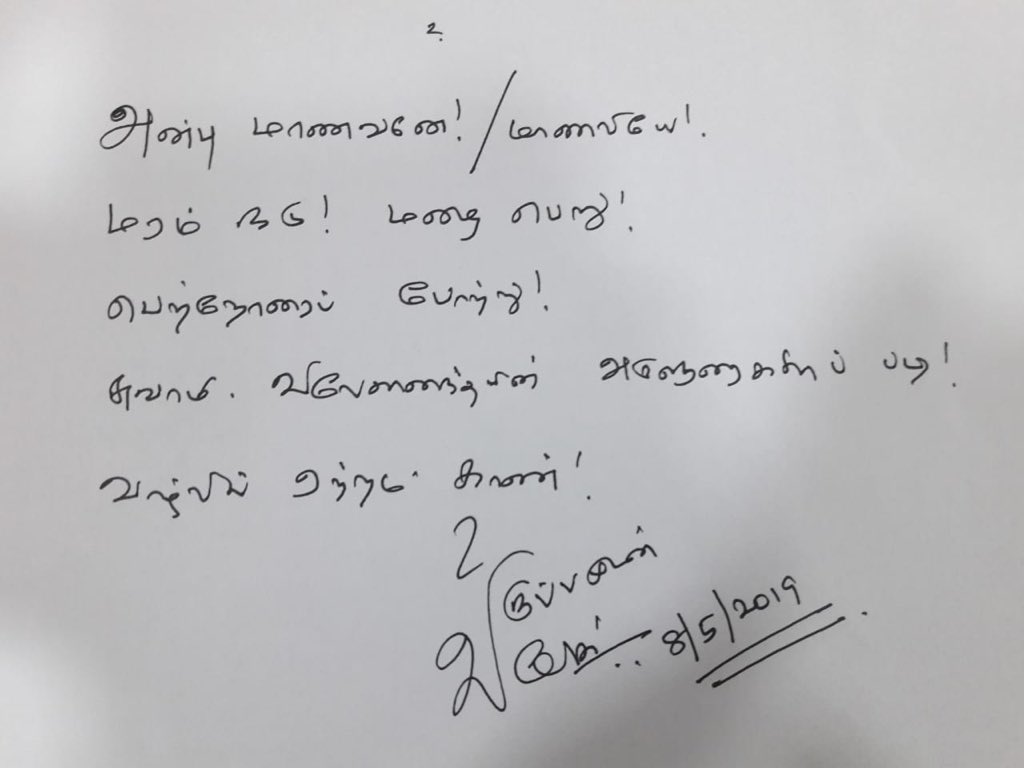 உ
அன்பு மாணவனே!/மாணவியே!
மரம் நடு! மழை பெறு!
பெற்றோரைப் போற்று!
சுவாமி. விவேகானந்தரின் அறவுரைகளைப் படி!
வாழ்வில் ஏற்றம் காண்!
8/5/2019